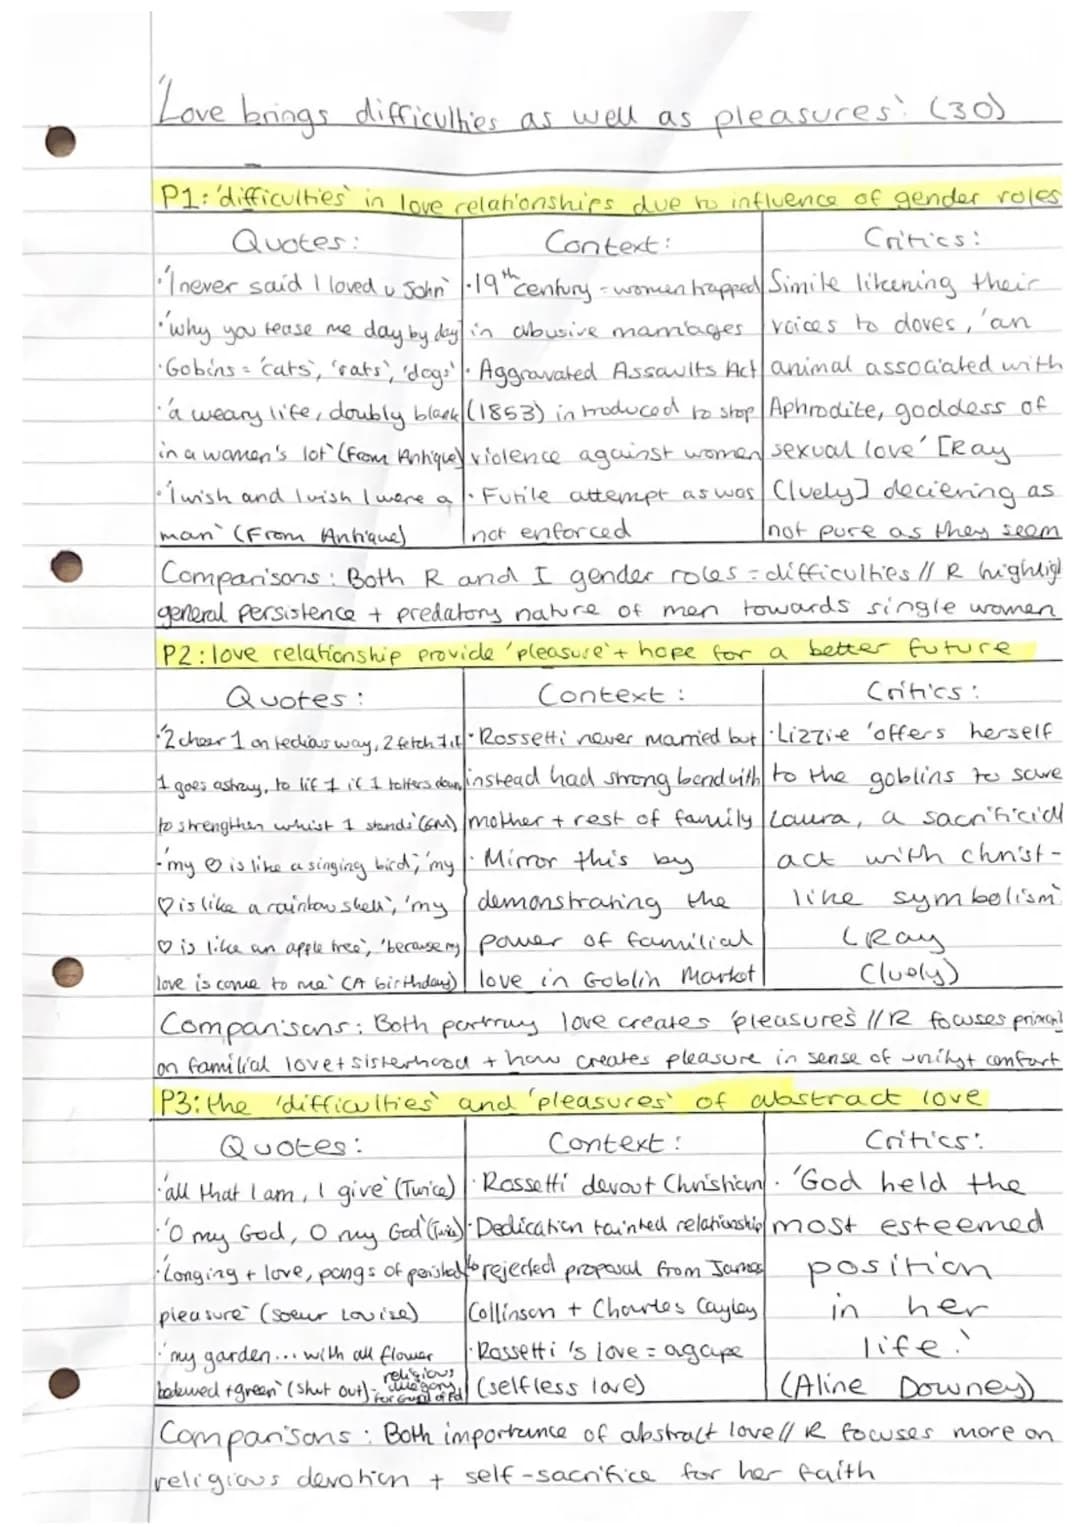 'Love brings difficulties as well as pleasures' (30)
P1: 'difficulties' in love relationships due to influence of gender roles
Quotes: Context: Critics:
·'I never said I loved u John' ·19th century = women trapped Simile likening their
·'why you tease me day by day' in abusive marriages voices to doves, 'an
·Gobins = 'cats', 'rats', 'dogs' · Aggravated Assaults Act animal associated with
·'a weary life, doubly blank (1853) introduced to stop Aphrodite, goddess of
in a women's lot' (From Antique) violence against women sexual love' [Ray
·'I wish and I wish I were a · Futile attempt as was Cluely] deciering as
man' (From Antique) not enforced not pure as they seem
Comparisons: Both R and I gender roles = difficulties // R highligh
general persistence + predatory nature of men towards single women
P2: love relationship provide 'pleasure' + hope for a better future
Quotes: Context: Critics:
·'2 cheer 1 on tedious way, 2 fetch 1 if · Rossetti never married but · Lizzie 'offers herself
1 goes astray, to lif 1 if 1 totters down, instead had strong bond with to the goblins to save
to strengthen whist 1 stands' (GM) mother + rest of family Laura, a sacrificial
·'my ♡ is like a singing bird', 'my · Mirror this by act with christ-
♡ is like a rainbow shell', 'my demonstrating the like symbolism'
♡ is like an apple tree', 'because my power of familial (Ray
love is come to me' (A birthday) love in Goblin Market Cluely)
Comparisons: Both portray love creates 'pleasures' // R focuses
on familial love + sisterhood + how creates pleasure in sense of unity + comfort
P3: the 'difficulties' and 'pleasures' of abstract love
Quotes: Context: Critics:
·'all that I am, I give' (Twice) · Rossetti devout Christian · 'God held the
·'O my God, O my God' (Twice) · Dedication tainted relationship most esteemed
·'Longing + love, pangs of perished to rejected proposal from James position
pleasure' (Soeur Louise) Collinson + Charles Cayley in her
·'my garden... with all flower · Rossetti's love = agape life.'
bedewed + green' (Shut out) - religious allegory for Gard of Ed (selfless love) (Aline Downey)
Comparisons: Both importance of abstract love // R focuses more on
religious devotion + self-sacrifice for her faith